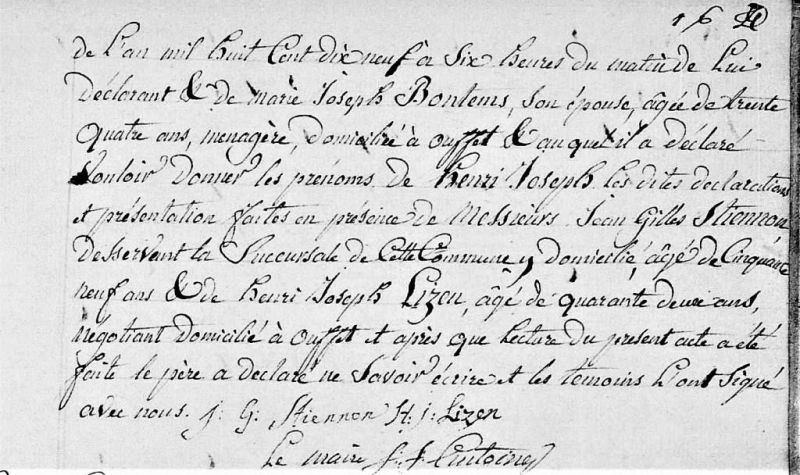 16
de L'an mil huit Cent dix neuf à Six heures du matin de Lui
Déclarant & de marie Joseph Bontems, Son épouse, âgée de trente
quatre ans, menagère, domicilié à ouffet & auquel il a déclaré
Vouloir donner les prenoms de henri Joseph les dites declarations
et présentation faites en présence de Messieurs Jean Gilles Stiennon
Desservant la Succursale de Cette Commune y domicilié, âgé de Cinquante
neuf ans & de henri Joseph Lizen, âgé de quarante deux ans,
négotiant Domicilié à ouffet et après que Lecture du present acte a été
faite le père a declaré ne Savoir écrire et les temoins L'ont Signé
avec nous. J: G: Stiennon H: j: Lizen
Le maire